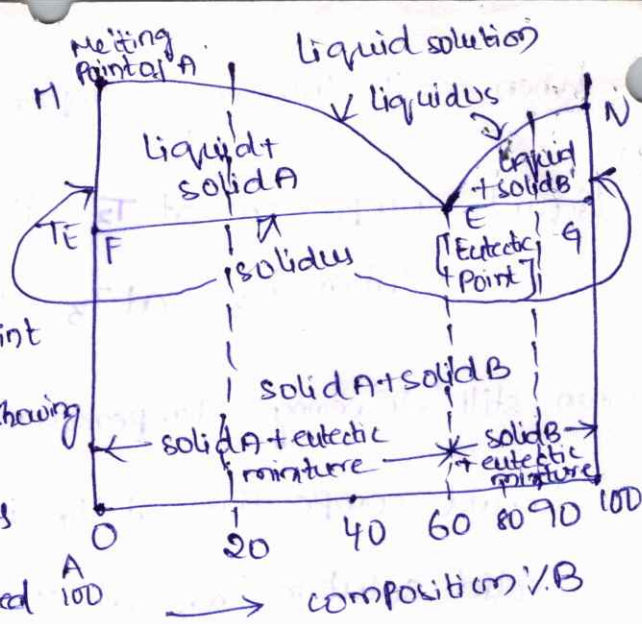 Melting
Point of A
Liquid solution
M
liquidus
N
Liquid+
solid A
Liquid
+solid B
TE
F
E
G
[Eutectic
Point]
solidus
int
solid A+solid B
howing
solid A + eutectic
mixture
solid B
+ eutectic
mixture
s
0
20
40
60
80
90
100
A
100
ed
composition %B